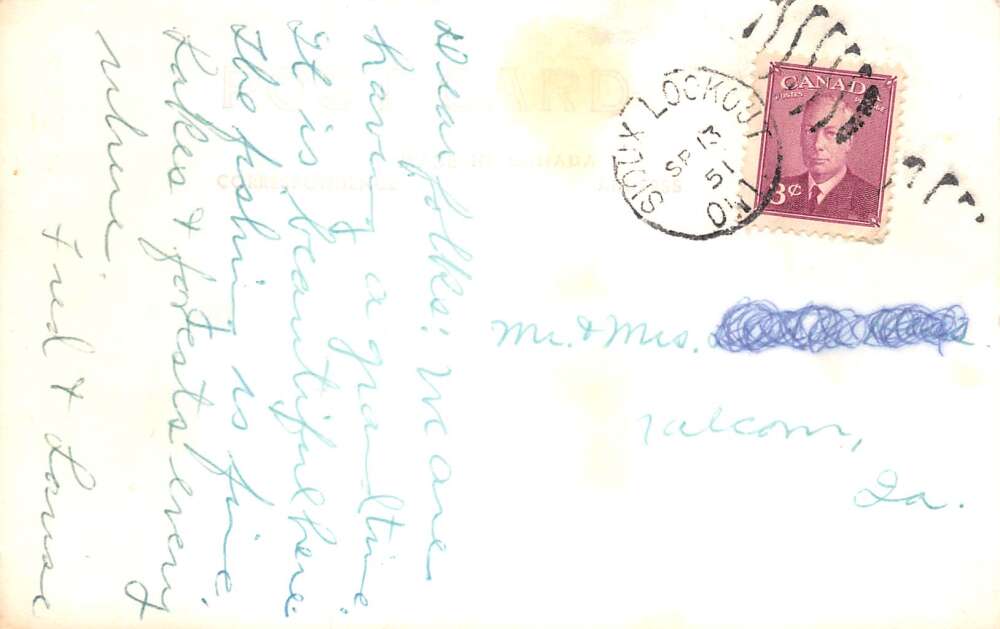 Dear folks: We are
having a grand time.
It is beautiful here
The fishing is fine.
Lakes & forests every
where.
Fred & Louise
POST CARD
MADE IN CANADA
CORRESPONDENCE
ADDRESS
SIOUX LOOKOUT
SP 13
51
ONT
CANADA
POSTES POSTAGE
3¢
Mr. & Mrs.
Ia.